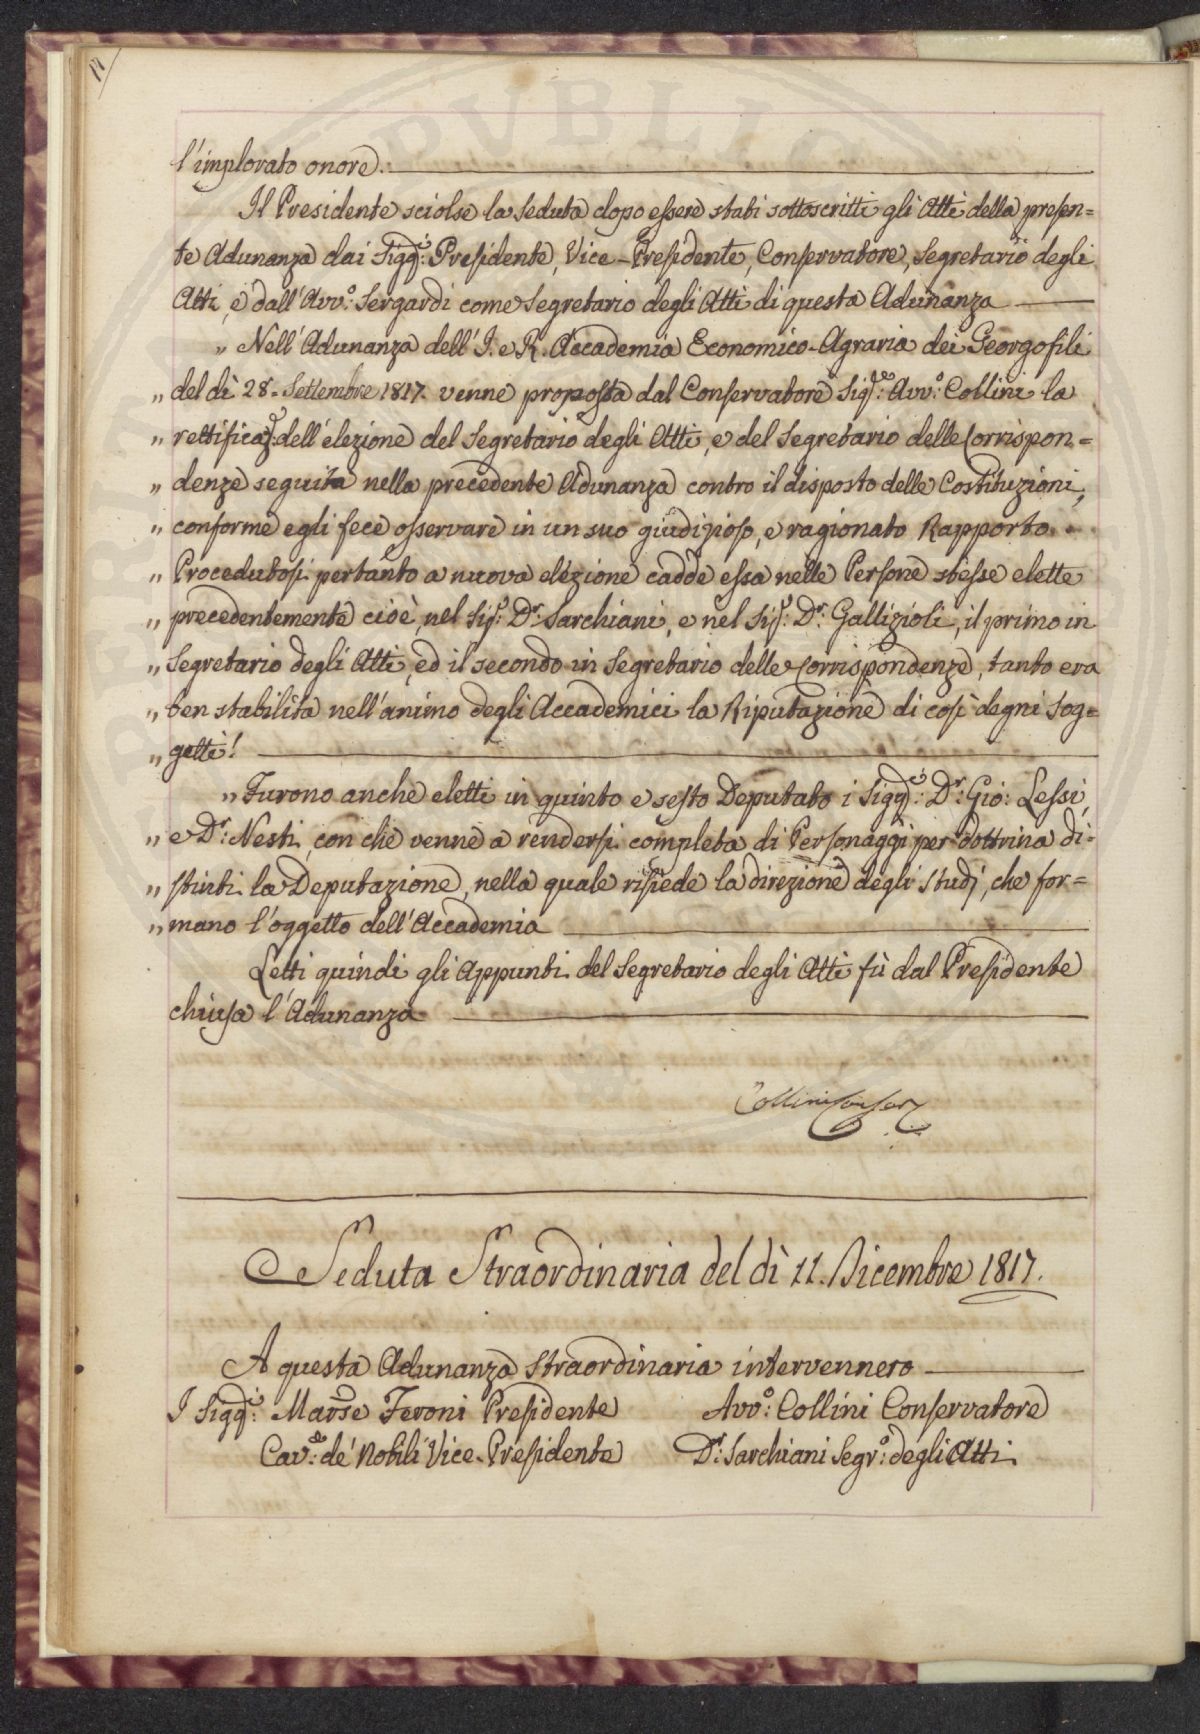 l'implorato onore.
Il Presidente sciolse la seduta dopo essere stati sottoscritti gli Atti della presen=
te Adunanza dai Sigg.i: Presidente, Vice-Presidente, Conservatore, Segretario degli
Atti, e dall'Avv.o: Sergardi come Segretario degli Atti di questa Adunanza
„ Nell'Adunanza dell'I. e R. Accademia Economico-Agraria dei Georgofili
„ del dì 28. Settembre 1817. venne proposta dal Conservatore Sig.re: Avv.o: Collini la
„ rettificaz.e: dell'elezione del Segretario degli Atti, e del Segretario delle Corrispon=
„ denze seguita nella precedente Adunanza contro il disposto delle Costituzioni,
„ conforme egli fece osservare in un suo giudizioso, e ragionato Rapporto.
„ Procedutosi pertanto a nuova elezione cadde essa nelle Persone stesse elette
„ precedentemente cioè, nel Sig.r: D.r: Sarchiani, e nel Sig.r: D.r: Gallizioli, il primo in
„ Segretario degli Atti, ed il secondo in Segretario delle Corrispondenze, tanto era
„ ben stabilita nell'animo degli Accademici la Riputazione di così degni Sog=
„ getti!
„ Furono anche eletti in quinto e sesto Deputato i Sigg.i: D.r: Gio: Lessi,
„ e D.r: Nesti, con che venne a rendersi completa di Personaggi per dottrina di-
„ stinti la Deputazione, nella quale risiede la direzione degli Studj, che for=
„ mano l'oggetto dell'Accademia
Letti quindi gli Appunti del Segretario degli Atti fù dal Presidente
chiusa l'Adunanza
Collini
Seduta Straordinaria del dì 11. Dicembre 1817.
A questa Adunanza Straordinaria intervennero
I Sigg.i: Marse Feroni Presidente Avv.o: Collini Conservatore
Cav.re: de' Nobili Vice-Presidente D.r: Sarchiani Segr.o: degli Atti